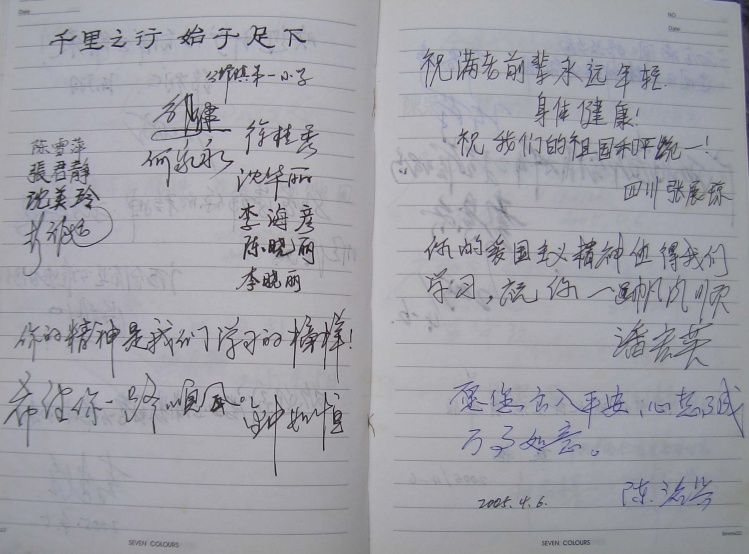 Date:
千里之行 始于足下
第一小学
陈雪萍
張君静
沈美玲
徐桂香
沈华丽
李海彦
陈晓丽
李晓丽
你的精神是我们学习的榜样!
希望你一路顺风。
SEVEN COLOURS
NO:
Date:
祝满老前辈永远年轻.
身体健康!
祝我们的祖国和平统一!
四川 张展琼
你的爱国主义精神值得我们
学习,祝你一路帆风顺
潘宏英
愿您出入平安,心想事成
万事如意。
2005.4.6.
陈
SEVEN COLOURS